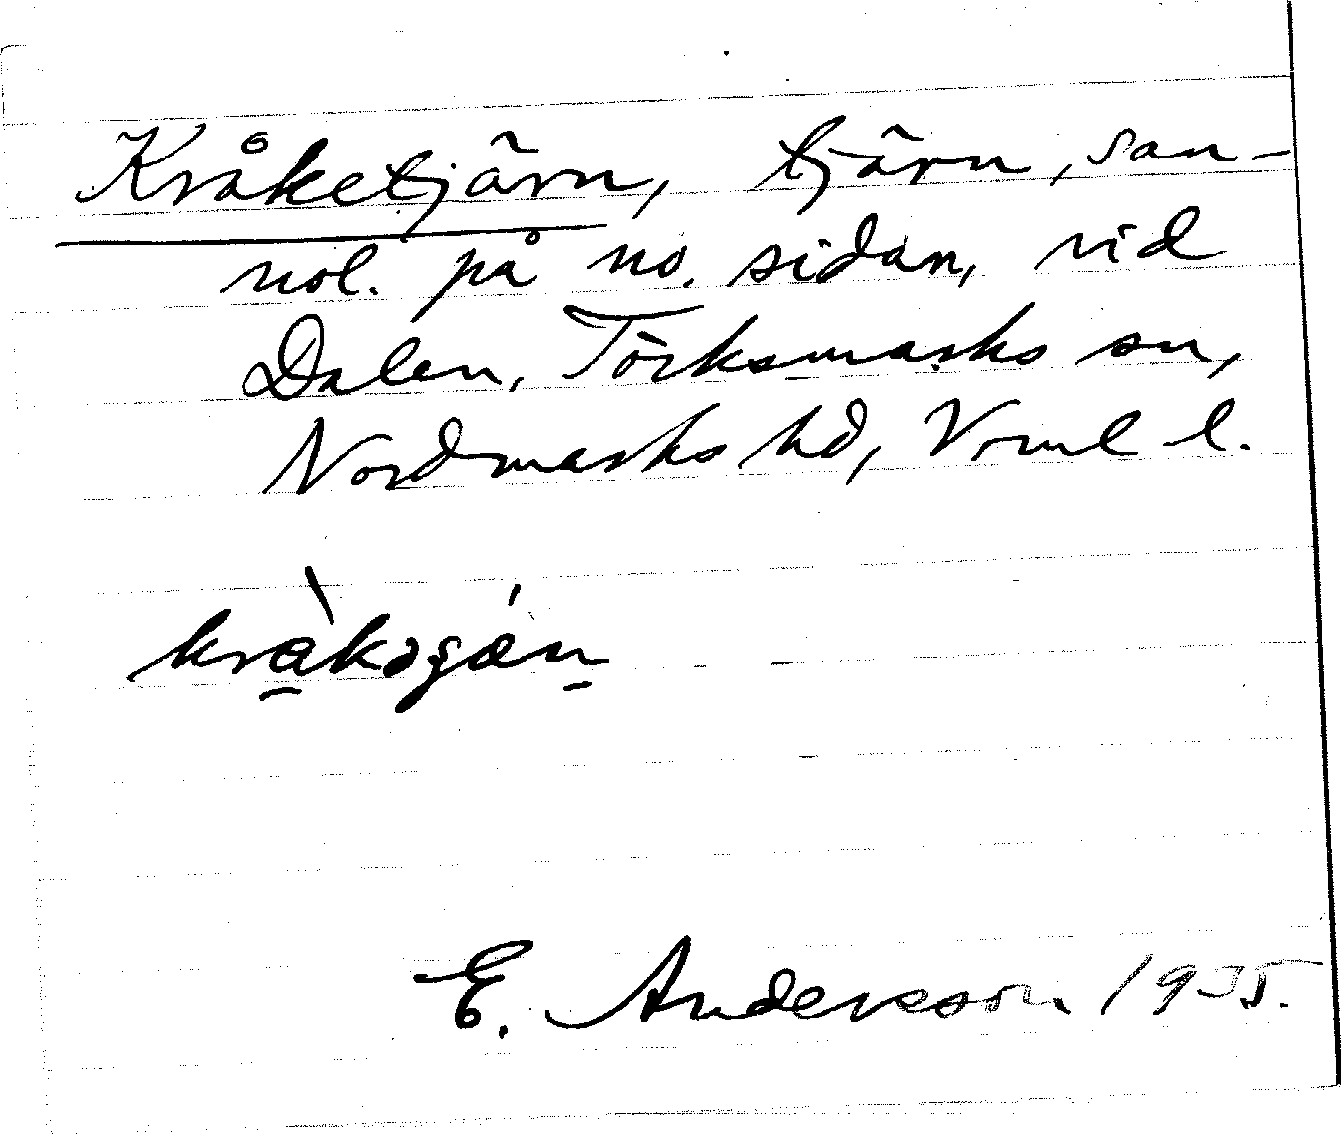 Kråketjärn, tjärn, san-
nol. på no. sidan, vid
Dalen, Töcksmarks sn,
Nordmarks hd, Vrml l.
E. Andersson 1935.